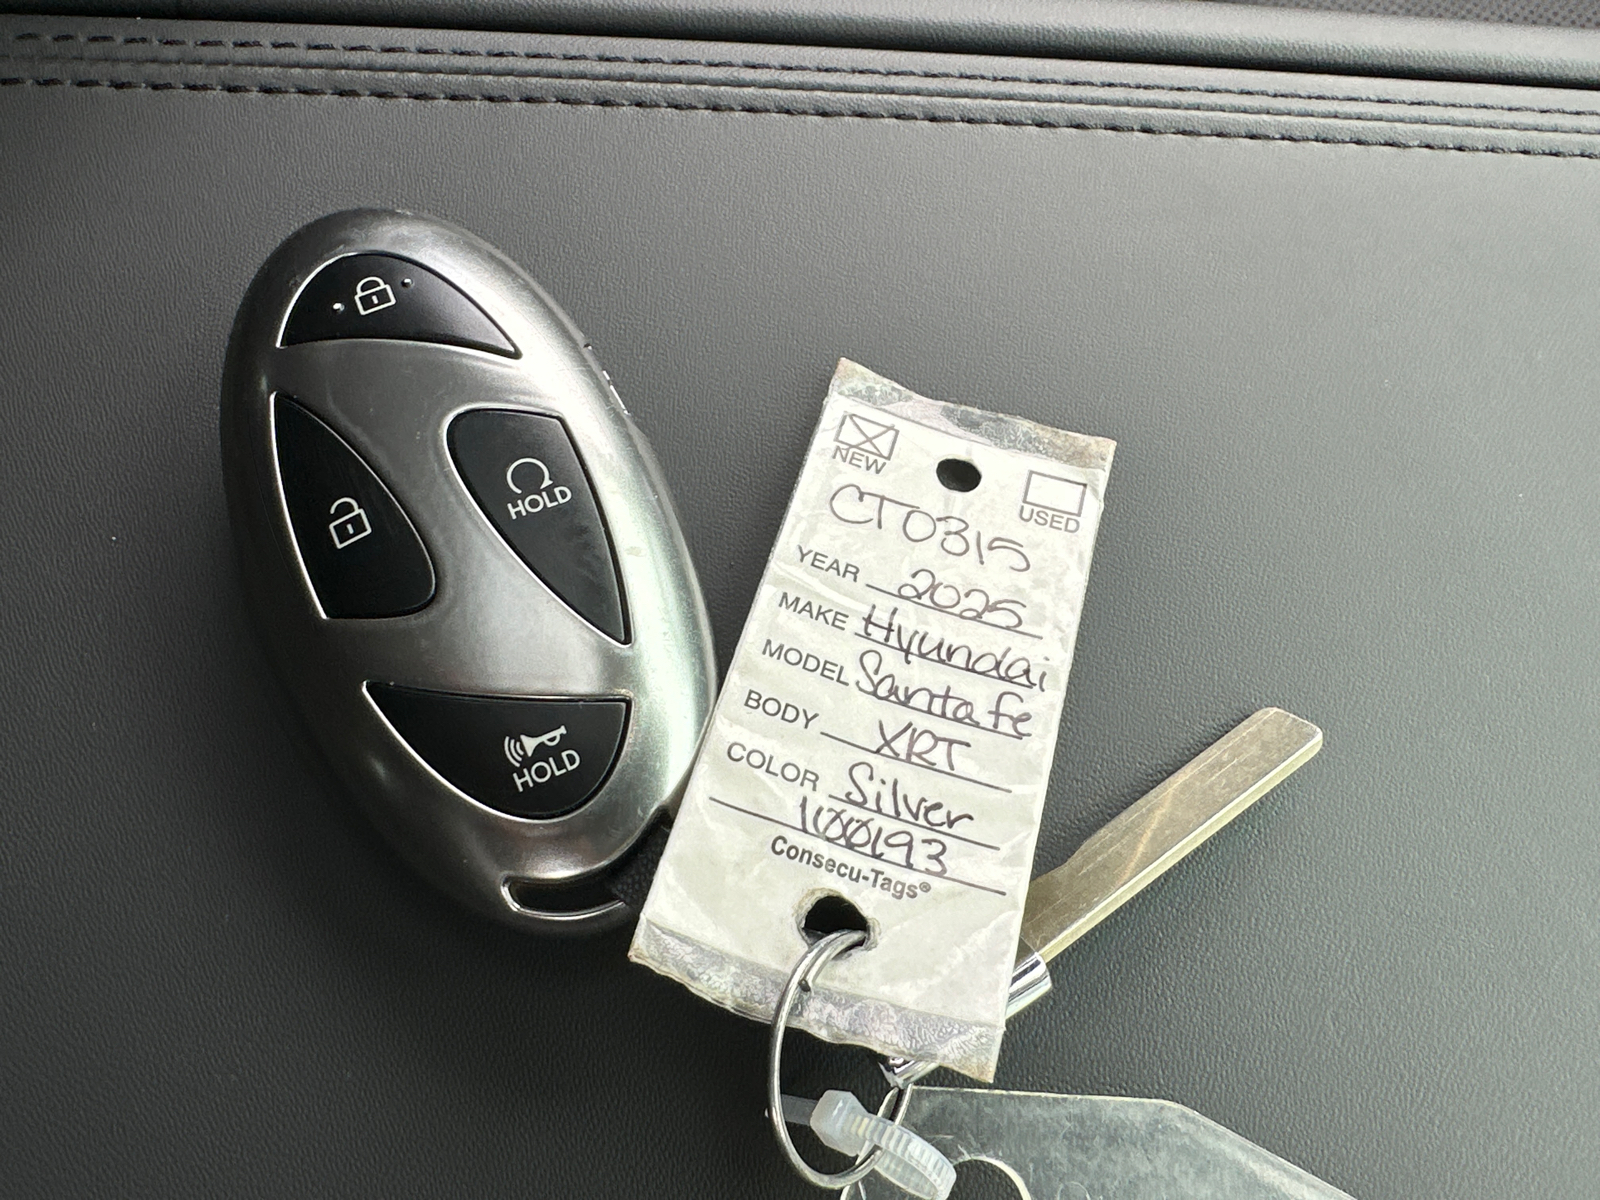 HOLD
HOLD
NEW
USED
CT0315
YEAR 2025
MAKE Hyundai
MODEL Santa fe
BODY XRT
COLOR Silver
1100193
Consecu-Tags®